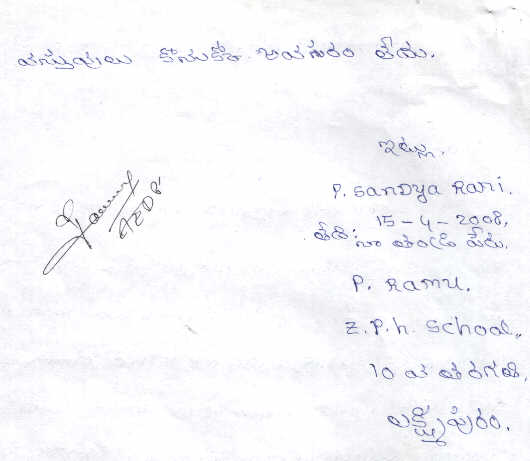 వస్తువులు కొనుకోనే అవసరం లేదు.
ఇట్లు.
P. Sandya Rani.
తేది: 15-4-2008,
నా తండ్రి పేరు.
P. Ramu.
Z.P.H. School,
10 వ తరగతి,
లక్ష్మీపురం.
AEDP